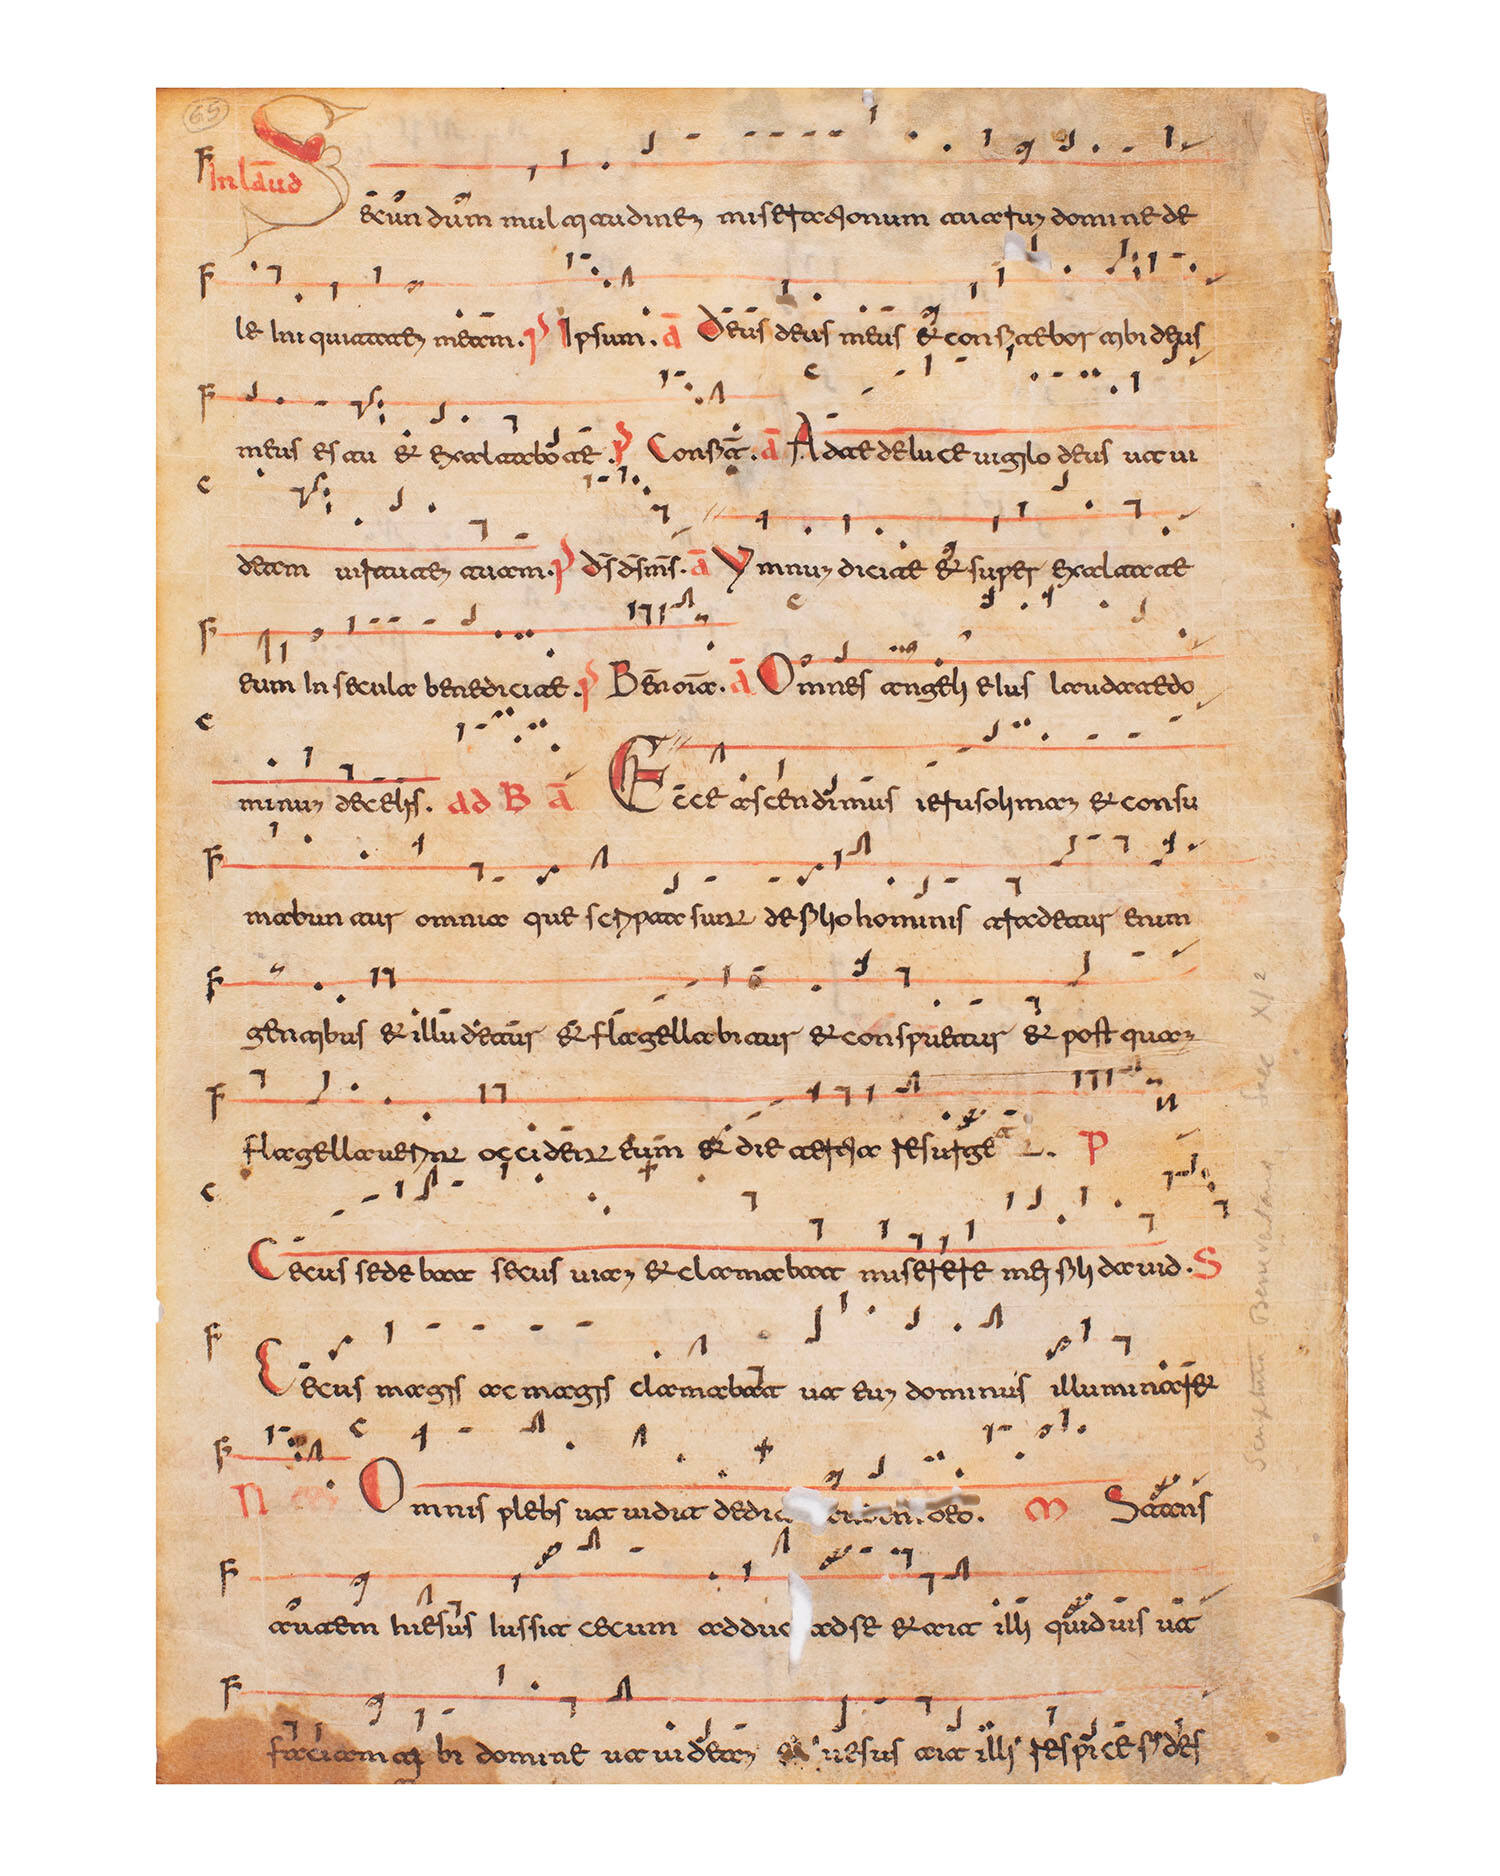 65
In laud
Secundum multitudinem miserationum tuarum domine de
le iniquitatem meam. p Ipsum. a Deus deus meus et confitebor tibi deus
meus es tu et exaltabo te. p Confit. a Ad te de luce vigilo deus ut vi
deam virtutem tuam. p ds ds ms. a Ymnum dicite et super exaltate
eum in secula benedicite. p Ben oia. a Omnes angeli eius laudate do
minum de celis. ad B a Ecce ascendimus ierusolimam et consu
mabuntur omnia que scripta sunt de filio hominis tradetur enim
gentibus et illudetur et flagellabitur et conspuetur et postquam
flagellaverint occident eum et die tertia resurget. P
Cecus sedebat secus viam et clamabat miserere mei fili david. S
Cecus magis ac magis clamabat ut eum dominus illuminaret
N Omnis plebs ut vidit dedit deo. M Stans
autem hiesus iussit cecum adduc ad se et ait illi quid vis ut
faciam tibi domine ut videam et iesus ait illi respice fides
Scriptura Beneventana Saec XI/2